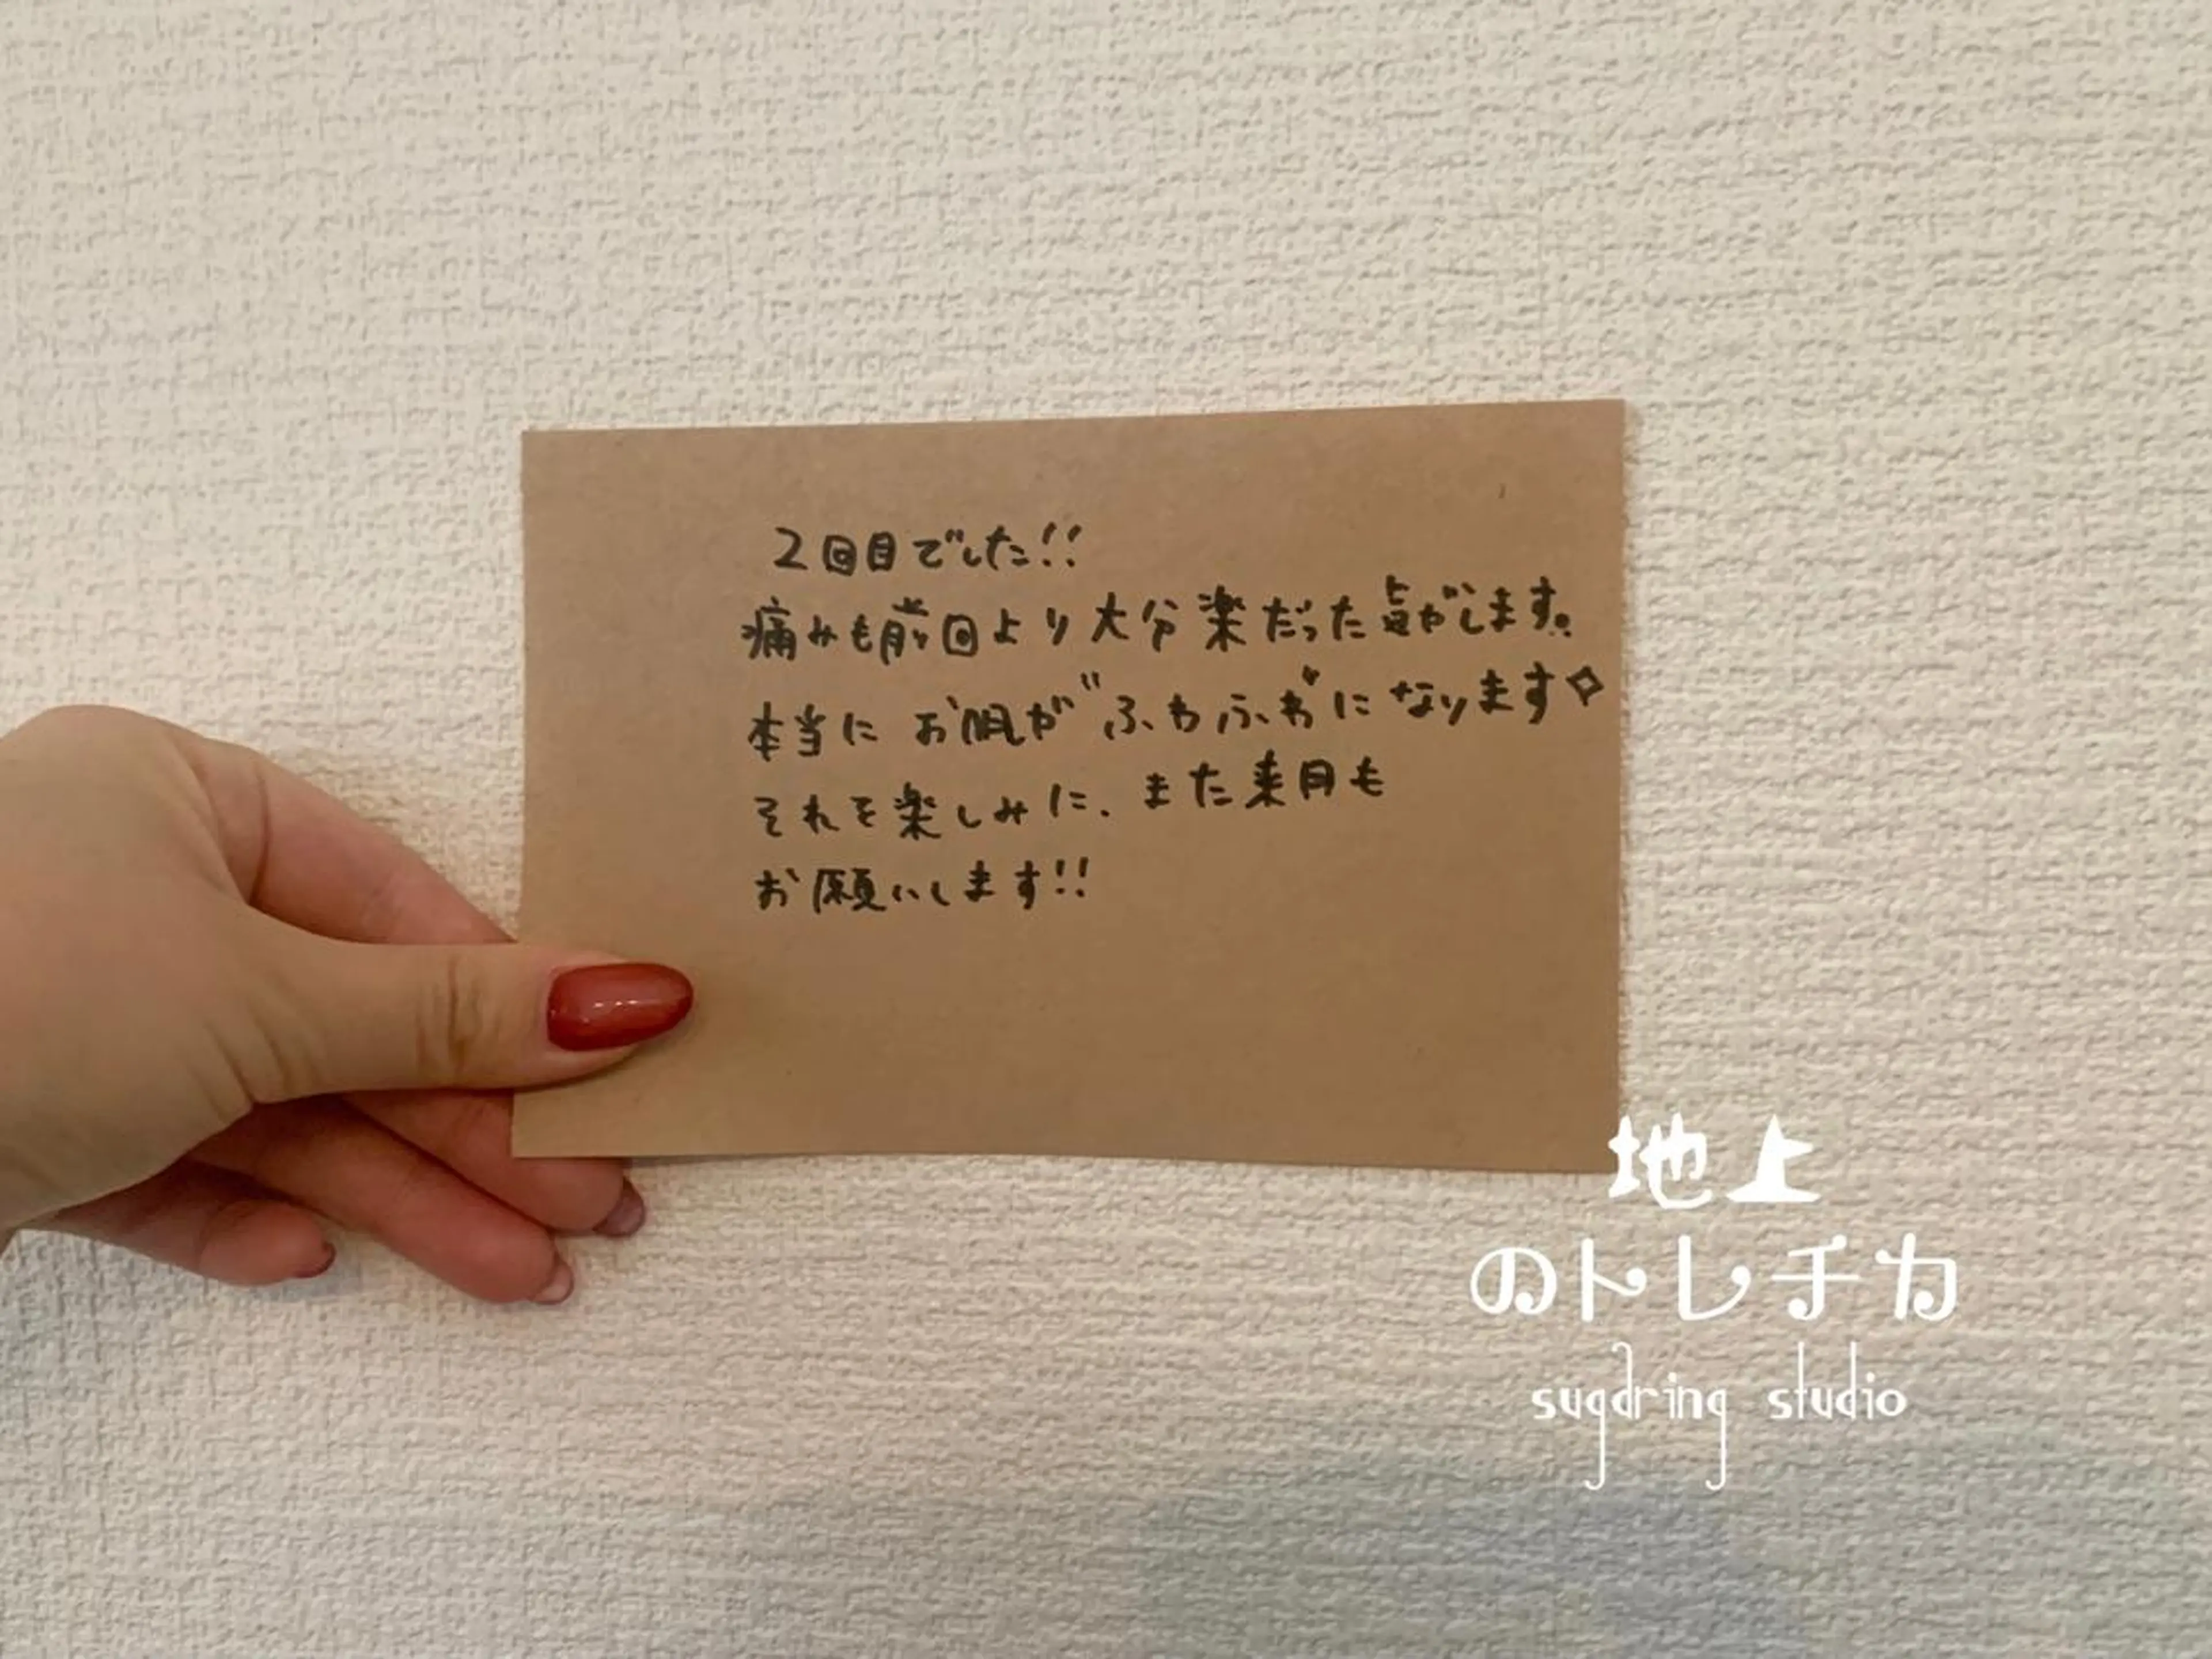 2回目でした!!
痛みも前回より大分楽だった気がします。
本当に お肌が"ふわふわ"に なります✧
それを楽しみに、また来月も
お願いします!!
地上
のトレチカ
sugaring studio